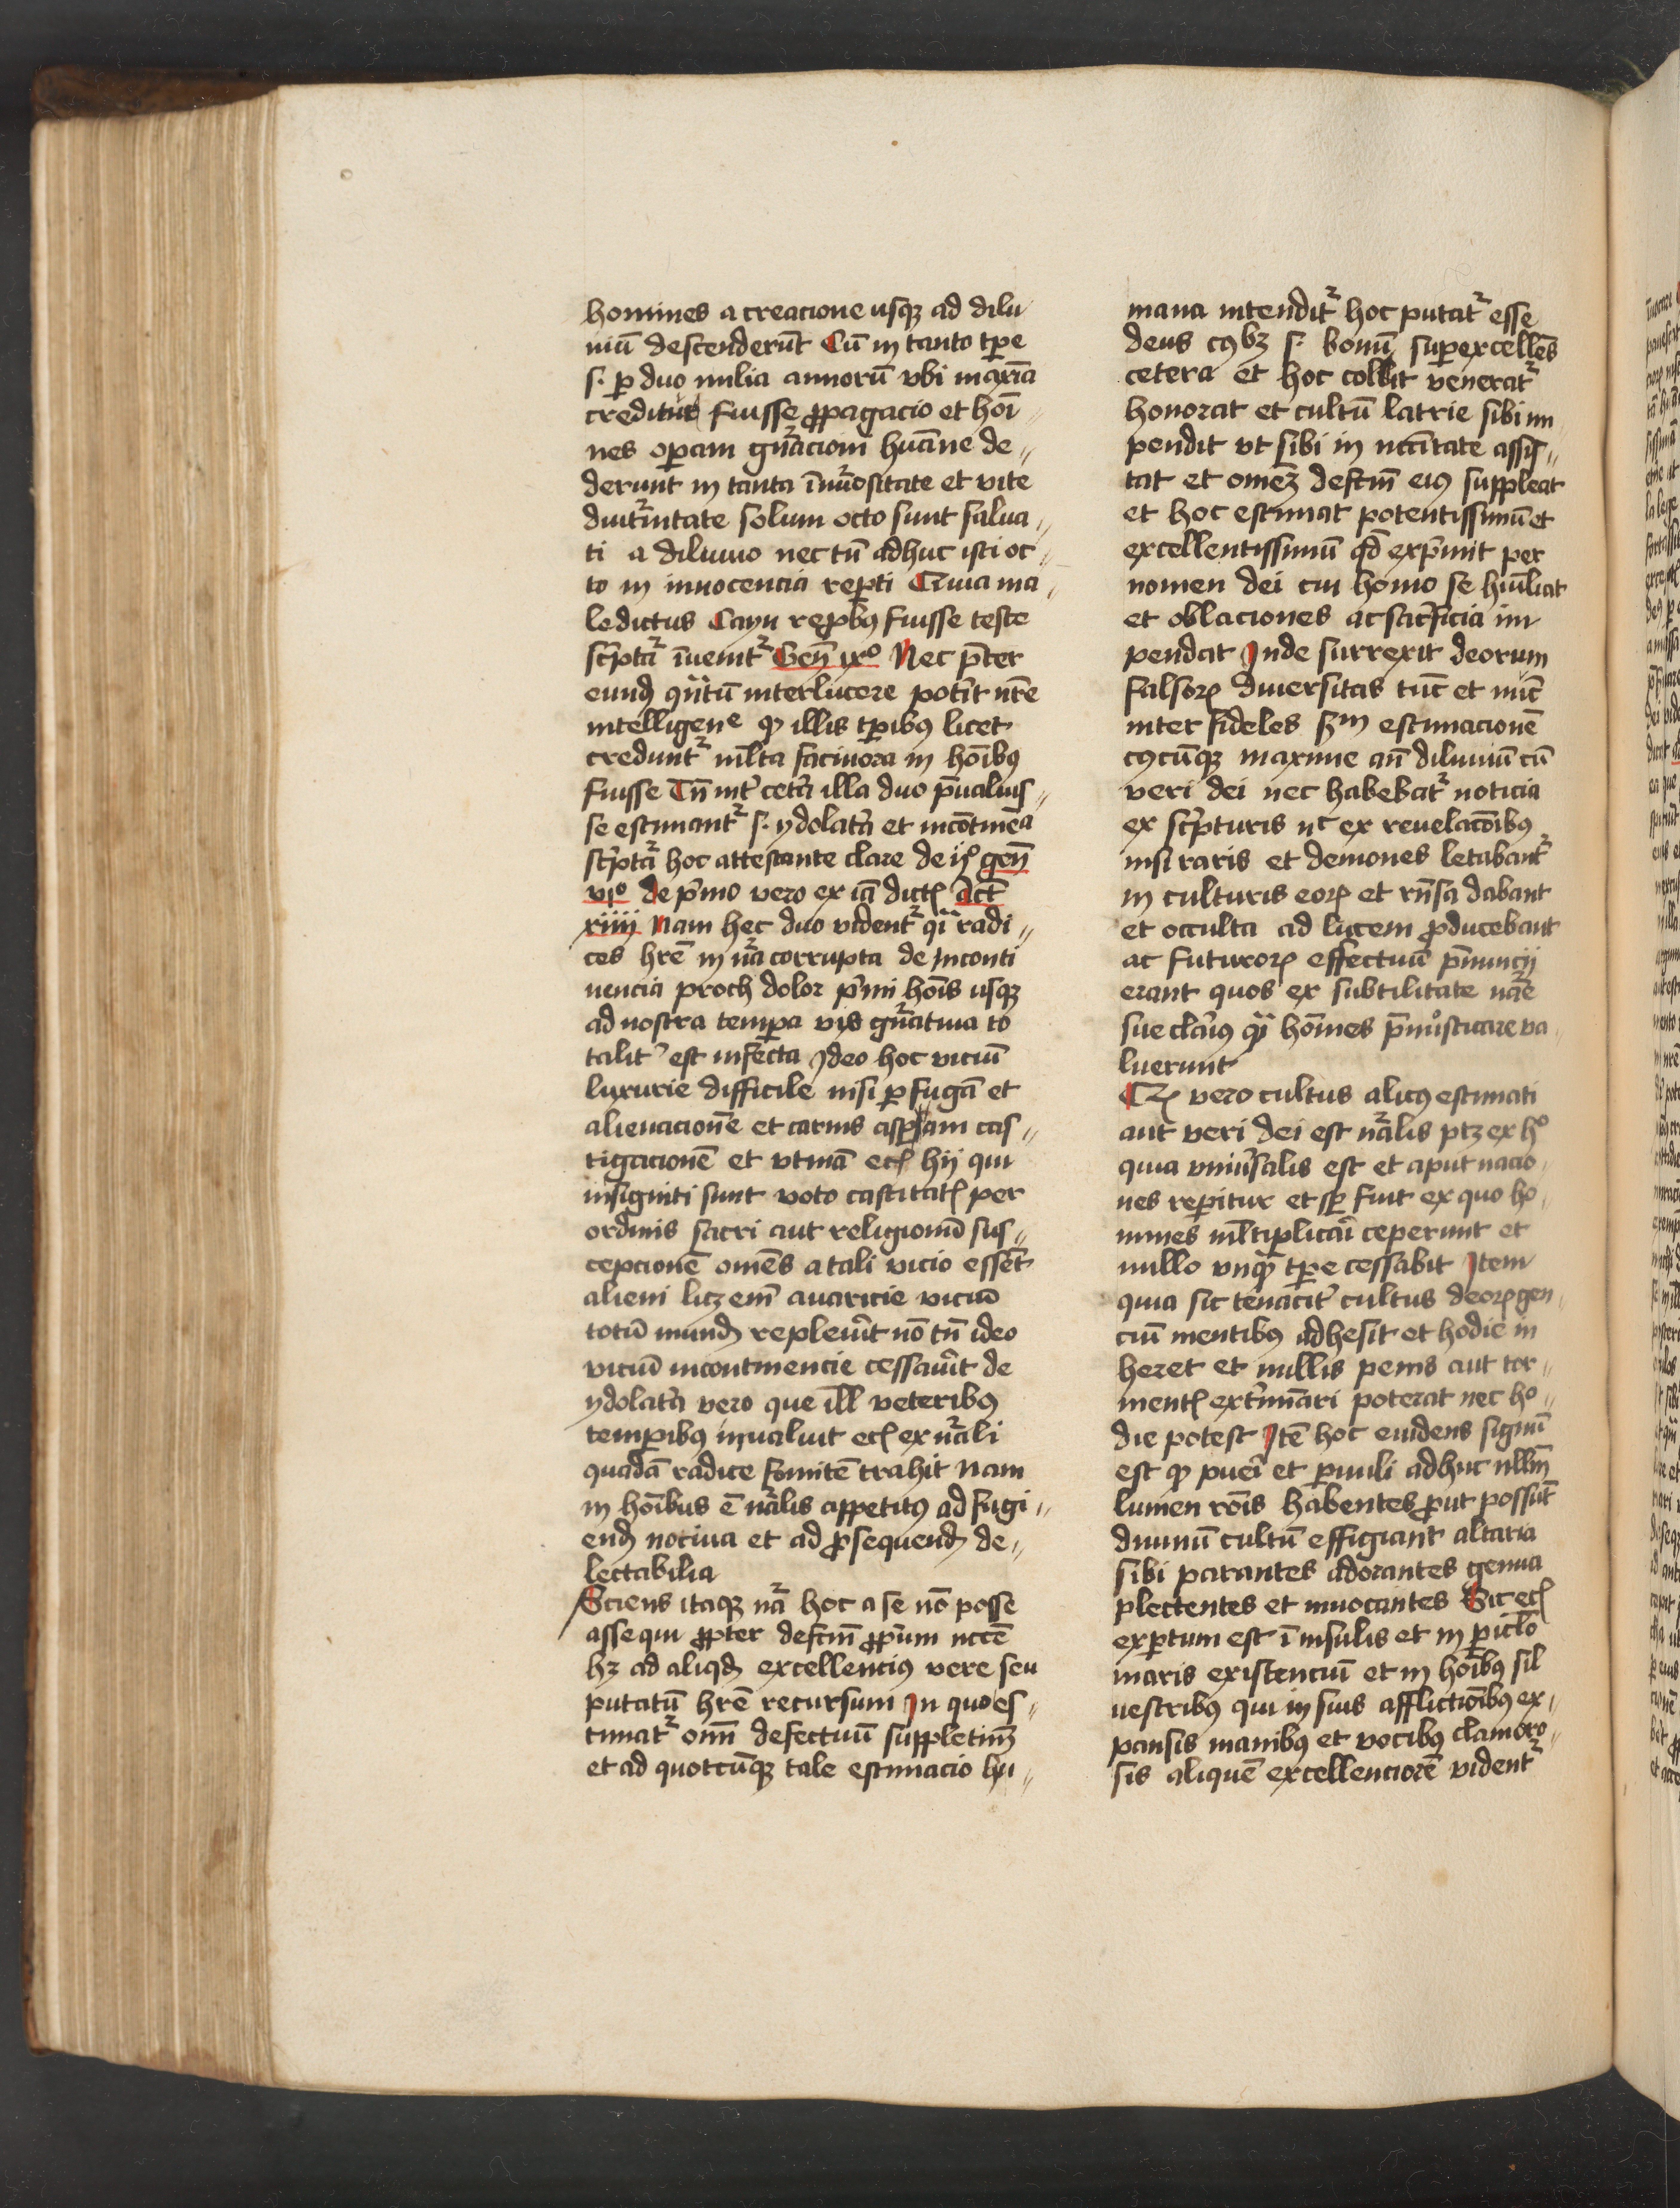 homines a creacione usqꝫ ad dilu
uiū descenderūt Cū in tanto tꝑe
s. ꝑ duo milia annorū vbi maxīa
creditur fuisse ꝓpagacio et hoī
nes oꝑam gn̄acioni hūane de„
derunt in tanta
diuturnitate solum octo sunt salua„
ti a diluuio nec tn̄ adhuc isti oc„
to in innocencia reꝑti Quia ma„
ledictus Cayn reꝓbꝰ fuisse teste
scͥptᷓ īuenitᷣ Gen̄ ixº Nec p̄ter
eund interlucere potͥt nr̄e
intelligenᵉ ꝙ illis tꝑibꝰ licet
creduntᷣ ml̄ta facinora in hoībꝰ
fuisse Tn̄ intͥ cetͣ illa duo p̄ualuis„
se estimantᷣ s. ydolatͥa et incōtinēᵃ
scͥptᷓ hoc attestante clare de iꝭ gen̄
viº de pͥmo vero ex iā dictꝭ Act̄
xiiii Nam hec duo videntᷣ qͣi radi„
ces hr̄e in nᷓa corrupta de Inconti
nencia proch dolor pͥmi hoīs usqꝫ
ad nostra tempꝑa vis gn̄atiua to
talitͥ est infecta Ideo hoc viciū
luxurie difficile nisi ꝑ fugā et
alienacionē et carnis aspꝑam cas„
tigacionē et vtinā ecꝭ hij qui
insigniti sunt voto castitatꝭ per
ordinis sacri aut religionū sus„
cepcionē omēs a tali vicio essēt
alieni licꝫ em̄ auaricie viciū
totū mund repleuͥit nō tn̄ ideo
viciū incontinencie cessauͥit de
ydolatͥa vero que ill̄ veteribꝰ
temꝑibꝰ inualuit ecꝭ ex nᷓali
quadā radice fomitē trahit Nam
in hoībus ē nᷓalis appetitꝰ ad fugi„
end nociua et ad ꝓsequend de„
lectabilia
Sciens itaqꝫ nᷓa hoc a se nō posse
assequi ꝓpter defcm̄ ꝓpͥum nccē
hꝫ ad aliqd excellenciꝰ vere seu
putatū hr̄e recursum In quo es„
timatᷣ oīm defectuū suppletiuꝫ
et ad quotcūqꝫ tale estimacio hu„
mana intenditᷣ hoc putatᷣ esse
deus cꝰbꝫ s. bonū superexcellēs
cetera et hoc collit veneratᷣ
honorat et cultū latrie sibi im
pendit vt sibi in nccītate assis„
tat et omeꝫ defcm̄ eiꝰ suppleat
et hoc estimat potentissimū et
excellentissimū qd expͥmit per
nomen dei cui homo se hūiliat
et oblaciones ac sacͥficia im
pendat Inde surrexit deorum
falsoꝝ diuersitas tūc et nūc
inter fideles scᵈm estimacionē
cꝰcūqꝫ maxime an̄ diluuiū cū
veri dei nec habebatᷣ noticia
ex scͥpturis nᶜ ex reuelacōībꝰ
nisi raris et demones letabantᷣ
in culturis eoꝝ et rn̄sa dabant
et occulta ad lucem ꝓducebant
ac futuroꝝ effectuū p̄nuncij
erant quos ex subtilitate nᷓe
sue clarͥꝰ qᷓ hoīes p̄nosticare va„
luerunt
Qꝭ vero cultus alicꝰ estimati
aut veri dei est nᷓalis ptꝫ ex hº
quia vniuͥsalis est et aput nacio„
nes reꝑitur et sꝑ fuit ex quo ho„
mines ml̄tiplicāi ceperunt et
nullo vnqᷓ tꝑe cessabit Item
quia sic tenacitͥ cultus deoꝝ gen„
ciū mentibꝰ adhesit et hodie in
heret et nullis penis aut tor„
mentꝭ extͥminari poterat nec ho„
die potest Itē hoc euidens signū
est ꝙ pueͥi et ꝑuuli adhuc nllm̄
lumen rōis habentes ꝓut possūt
diuinū cultū effigiant altaria
sibi parantes adorantes genua
plectentes et inuocantes Sic ecꝭ
exꝑtum est ī insulis et in ꝑiclo
maris existenciū et in hoībꝰ sil
uestribꝰ qui in suis afflictiōībꝰ ex„
pansis manibꝰ et vocibꝰ clamoro„
sis aliquē excellenciorē videntᷣ